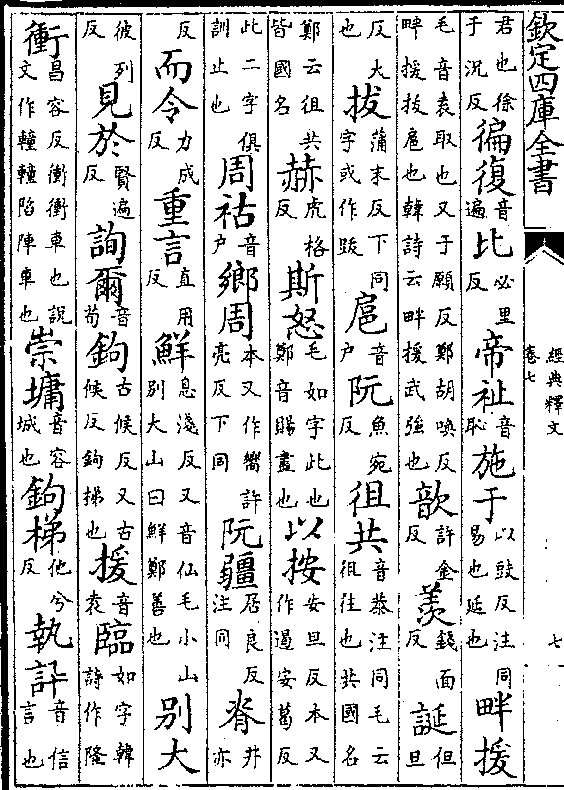 欽定四庫全書
經典釋文
卷七
七
君也徐于況反徧復音遍比必里反帝祉音恥施于以豉反注同易也延也畔援
毛音袁取也又于願反鄭胡喚反畔援拔扈也韓詩云畔援武強也歆許金反羨錢面反誕但旦
反大也拔蒲末反下同字或作跋扈音戶阮魚宛反徂共音恭注同毛云徂往也共國名
鄭云徂共皆國名赫虎格反斯怒毛如字此也鄭音賜盡也以按安旦反本又作遏安葛反
此二字俱訓止也周祜音戶鄉周本又作嚮許亮反下同阮疆居良反注同脊井亦
反而令力成反重言直用反鮮息淺反又音仙毛小山別大山曰鮮鄭善也別大
彼列反見於賢遍反詢爾音荀鉤古候反又古候反鉤梯也援音袁臨如字韓詩作隆
衝昌容反衝衝車也說文作䡴䡴陷陣車也崇墉音容城也鉤梯他兮反執訊音信言也